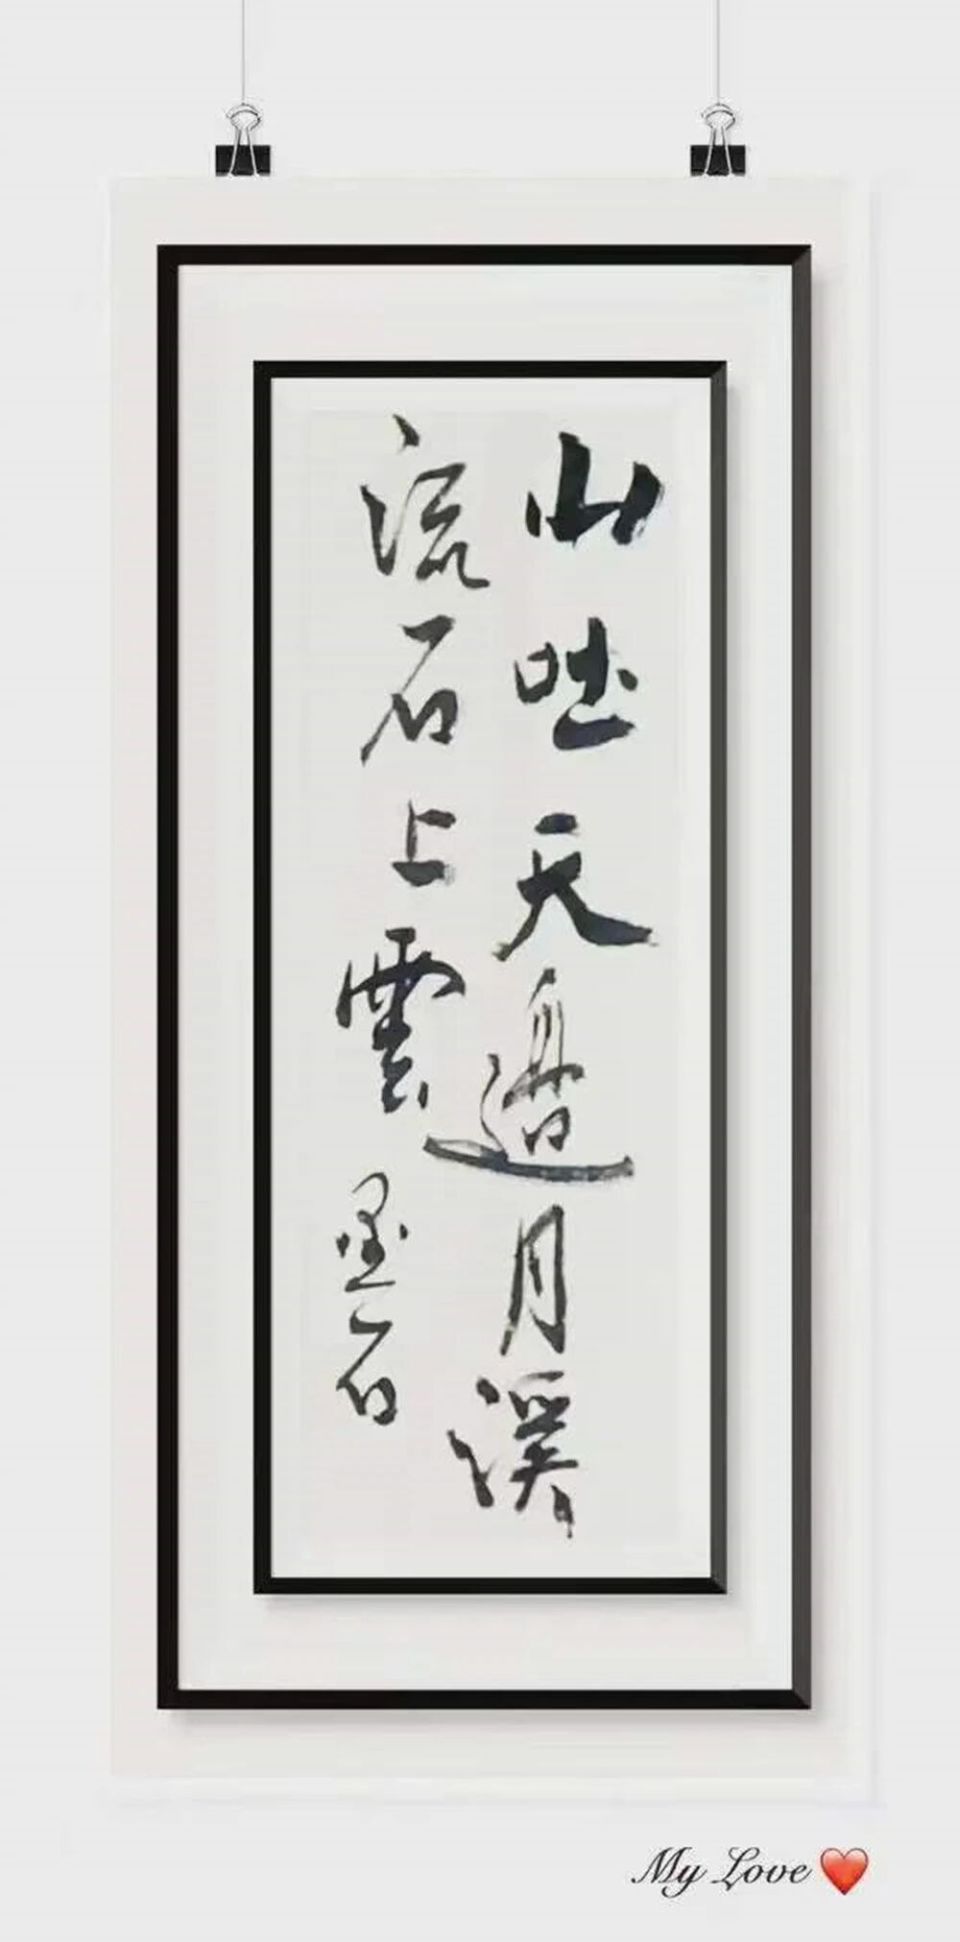 山吐天邊月溪
流石上雲
墨石
My Love❤️